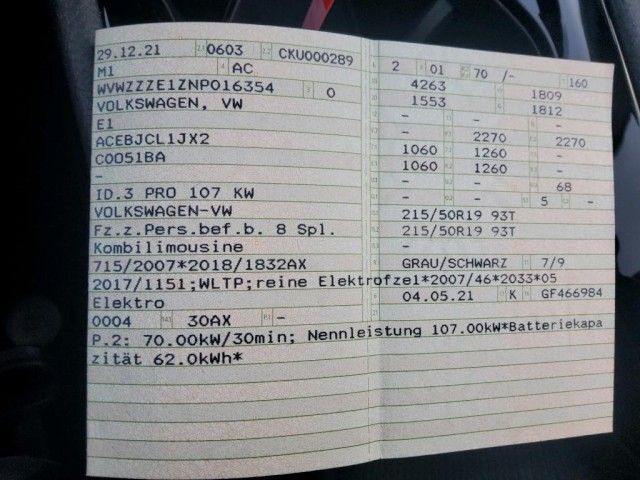 29.12.21 0603 CKU000289
M1 AC
WVWZZZE1ZNP016354 0
VOLKSWAGEN, VW
E1
ACEBJCL1JX2
C0051BA
-
ID.3 PRO 107 KW
VOLKSWAGEN-VW
Fz.z.Pers.bef.b. 8 Spl.
Kombilimousine
715/2007*2018/1832AX
2017/1151;WLTP;reine Elektrofze1*2007/46*2033*05
Elektro
0004 30AX -
P.2: 70.00kW/30min; Nennleistung 107.00kW*Batteriekapa
zität 62.0kWh*
2 01 70 /- 160
4263 1809
1553 1812
- - -
- 2270 2270
1060 1260 -
1060 1260 -
- - 68
- - 5 -
215/50R19 93T
215/50R19 93T
-
GRAU/SCHWARZ 7/9
04.05.21 K GF466984